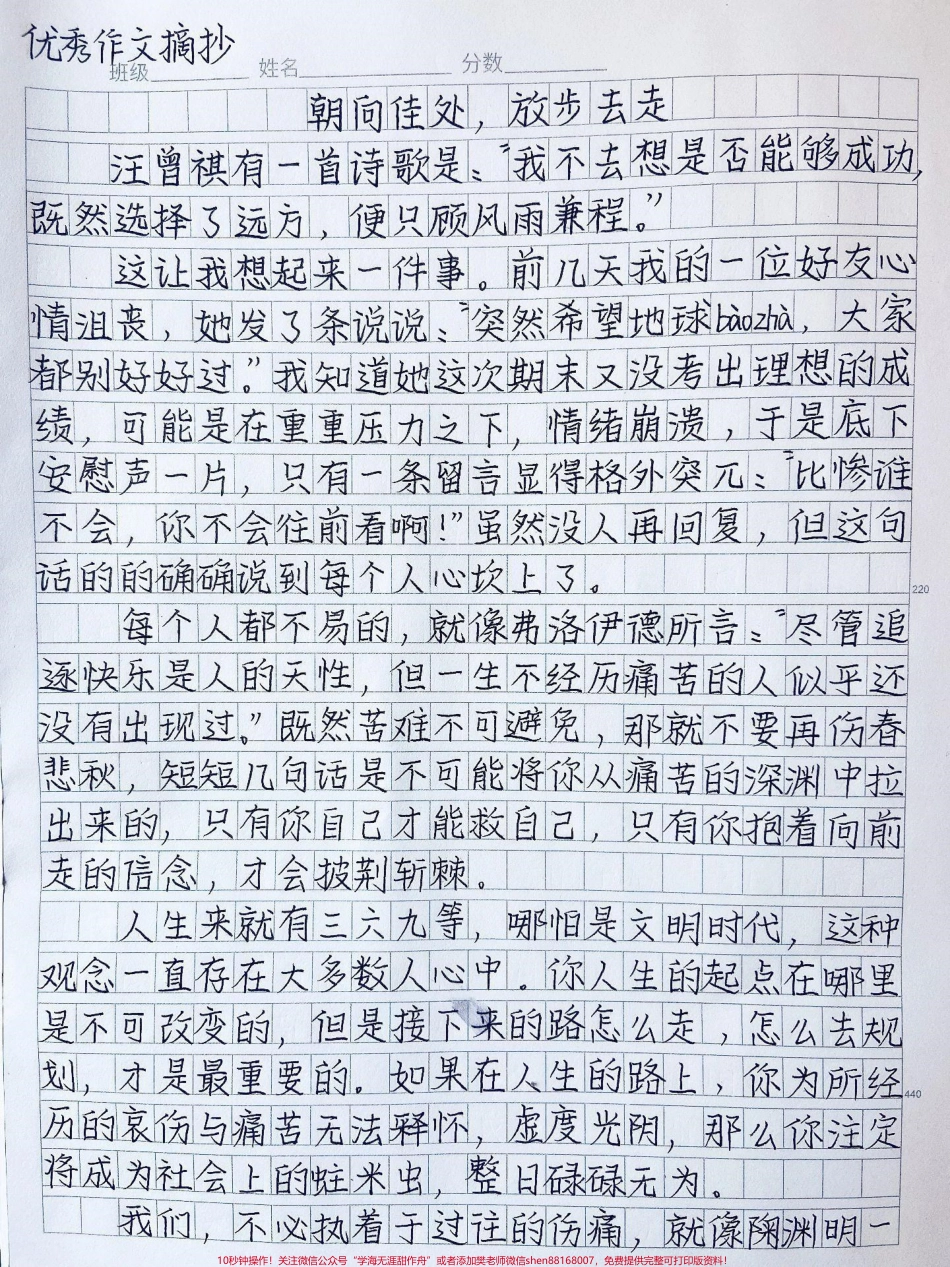 优秀作文摘抄
班级 姓名 分数
朝向佳处，放步去走
汪曾祺有一首诗歌是：“我不去想是否能够成功，
既然选择了远方，便只顾风雨兼程。”
这让我想起来一件事。前几天我的一位好友心
情沮丧，她发了条说说：“突然希望地球bàozhà，大家
都别好好过。”我知道她这次期末又没考出理想的成
绩，可能是在重重压力之下，情绪崩溃，于是底下
安慰声一片，只有一条留言显得格外突兀：“比惨谁
不会，你不会往前看啊！”虽然没人再回复，但这句
话的的确确说到每个人心坎上了。
220
每个人都不易的，就像弗洛伊德所言：“尽管追
逐快乐是人的天性，但一生不经历痛苦的人似乎还
没有出现过。”既然苦难不可避免，那就不要再伤春
悲秋，短短几句话是不可能将你从痛苦的深渊中拉
出来的，只有你自己才能救自己，只有你抱着向前
走的信念，才会披荆斩棘。
人生来就有三六九等，哪怕是文明时代，这种
观念一直存在大多数人心中。你人生的起点在哪里
是不可改变的，但是接下来的路怎么走，怎么去规
划，才是最重要的。如果在人生的路上，你为所经
440
历的哀伤与痛苦无法释怀，虚度光阴，那么你注定
将成为社会上的蛀米虫，整日碌碌无为。
我们，不必执着于过往的伤痛，就像陶渊明一
10秒钟操作！关注微信公众号“学海无涯甜作舟”或者添加樊老师微信shen88168007，免费提供完整可打印版资料！